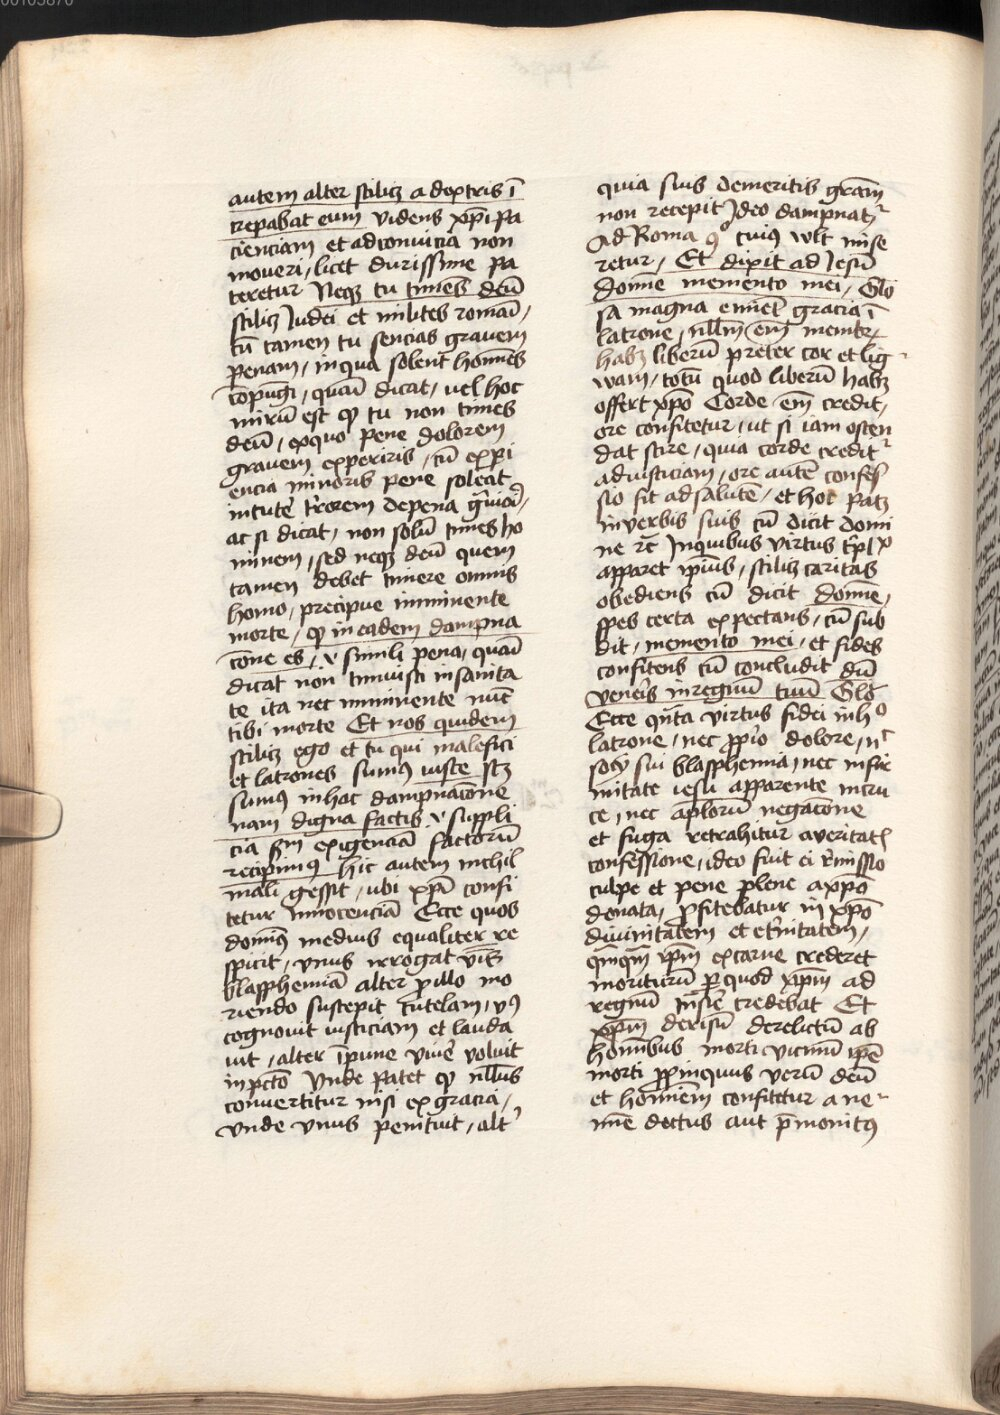 autem alter scilicꝫ a dextris ī
crepabat eum videns xp̄i pa
cienciam et ad conuicia non
moueri / licet durissime pa
teretur Neqꝫ tu times deū
scilicꝫ Iudei et milites romāi /
cū tamen tu sencias grauem
penam / in qua solent homīes
cōpūgi / quasi dicat / uel hoc
mirū est qꝫ tu non times
deū / ex quo pene dolorem
grauem experiris / cū experi
encia minoris pene soleat
incutẽ t̄rorem de pena g̃uiori /
ac si dicat / non solū times ho
minem / sed neqꝫ deū quem
tamen debet timere omnis
homo / precipue imminente
morte / qꝫ in eadem dampna
cōne es / v simili pena / quasi
dicat non timuisti in sanita
te ita nec imminente nūc
tibi morte Et nos quidem
scilicꝫ ego et tu qui malefici
et latrones sumꝯ iuste sꝫ
sumꝯ in hac dampnacōne
nam digna factis v suppli
cia scd̄m exigenciā factorū
recipimꝯ hic autem nichil
mali gessit / ubi xpm̄ confi
tetur innocenciā Ecce quos
dominꝯ medius equaliter re
spicit / vnus irrogat
blasphemiā alter pro illo mo
riendo suscepit tutelam / vnꝯ
cognouit iusticiam et lauda
uit / alter īpune viuẽ voluit
in pctō Vnde patet qꝫ nllūs
conuertitur nisi ex gracia /
Vnde vnus penituit / alt̕
quia suis demeritis grām
non recepit Ideo dampnatᷣ
Ad Roma 9º cuiꝯ wlt mise
retur / Et dixit ad Iesū
domīe memento mei / Glo
sa magna eminet gracia ī
latrone / nllm̄ em̄ membrꝝ
habꝫ liberū preter cor et lig
wam / totū quod liberū habꝫ
offert xpō Corde em̄ credit /
ore confitetur / ut si iam osten
dat scire / quia corde creditᷣ
ad iusticiam / ore autē confes
sio fit ad salutē / et hoc patꝫ
in verbis suis cū dicit domi
ne rc̄ In quibus virtus t̃plex
apparet ipsius / scilicꝫ caritas
obediens cū dicit domīe /
spes certa expectans / cū sub
dit / memento mei / et fides
confitens cū concludit dū
veneris in regnū tuū Glo
Ecce qn̄ta virtus fidei in hº
latrone / nec pprio dolore / nᶜ
socij sui blasphemia / nec infir
mitate iesu apparente in cru
ce / nec aplorū negacōne
et fuga retrahitur a veritatꝭ
confessione / ideo fuit ei r̄missio
culpe et pene plene a xpō
donata / profitebatur in xpō
diuinitatem et et̄nitatem /
qm̄qm̄ xpm̄ ex carne crederet
moriturū per quod xpm̄ ad
regnū trāsire credebat Et
xpm̄ derisū derelictū ab
hominibus morti vicinū ipse
morti ppinquus verū deū
et hominem confitetur a ne
mine doctus aut p̄monitꝯ